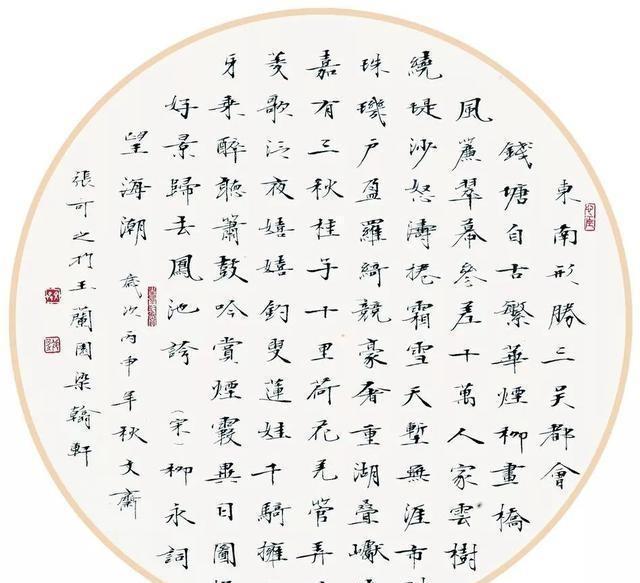 東南形勝三吳都會
錢塘自古繁華煙柳畫橋
風簾翠幕參差十萬人家雲樹
繞堤沙怒濤捲霜雪天塹無涯市
珠璣戶盈羅綺競豪奢重湖疊巘
嘉有三秋桂子十里荷花羌管弄
菱歌泛夜嬉嬉釣叟蓮娃千騎擁
牙乘醉聽簫鼓吟賞煙霞異日圖
好景歸去鳳池誇（宋）柳永詞
望海潮 歲次丙申年秋文齋
張可之於玉蘭園染翰軒